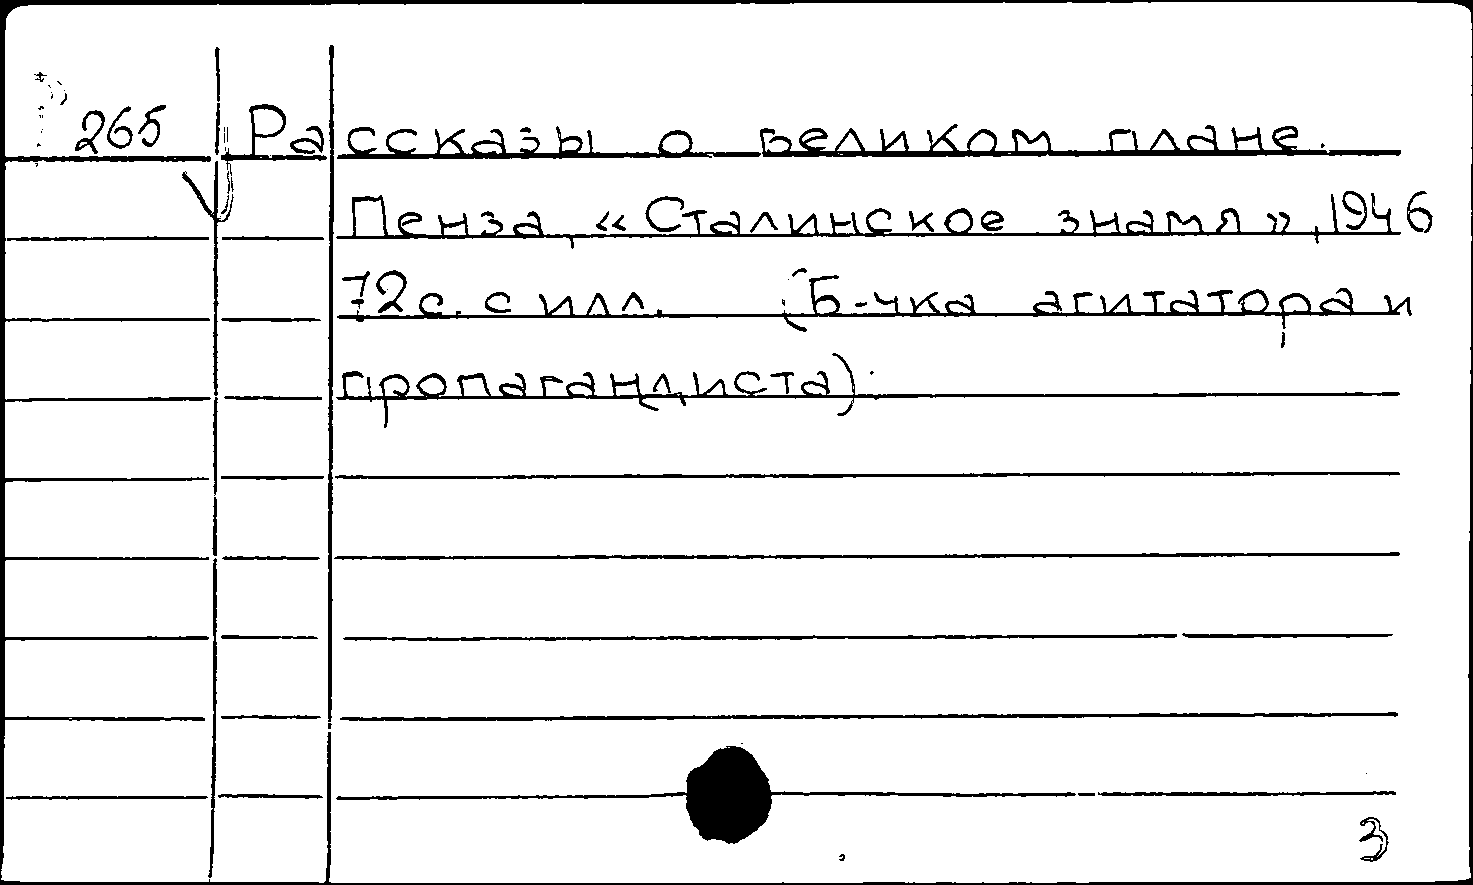 265 Рассказы о великом плане.
Пенза, «Сталинское знамя», 1946
72 с. с илл. (Б-чка агитатора и
пропагандиста).
3